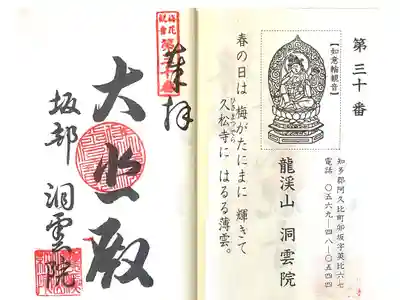 第三十番
【如意輪観音】
知多郡阿久比町卯坂字英比六七
電話 〇五六九-四八-〇五四四
龍渓山 洞雲院
春の日は 梅がたにまに 輝きて
久松寺に はるる薄雲。
奉拝
大悲殿
坂部 洞雲院